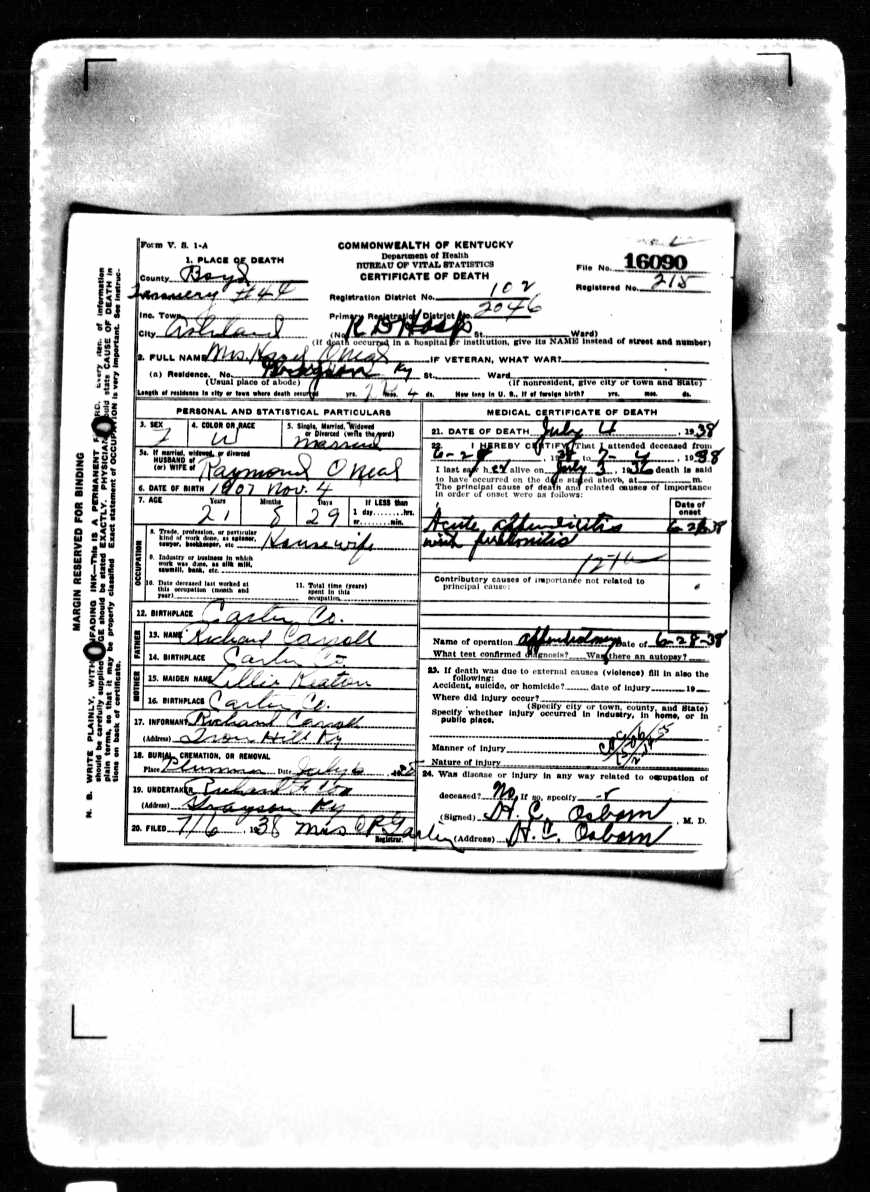 Form V. S. 1-A
COMMONWEALTH OF KENTUCKY
Department of Health
BUREAU OF VITAL STATISTICS
CERTIFICATE OF DEATH
File No. 16090
Registered No. 215
1. PLACE OF DEATH
County Boyd
#44
Registration District No. 102
Inc. Town
Primary Registration District No. 2046
City Ashland (No. K D Hosp St. Ward)
(If death occurred in a hospital or institution, give its NAME instead of street and number)
2. FULL NAME Mrs. Hazel O'Neal IF VETERAN, WHAT WAR?
(a) Residence. No. Grayson Ky St. Ward
(Usual place of abode) (If nonresident, give city or town and State)
Length of residence in city or town where death occurred yrs. mos. 4 ds. How long in U. S., if of foreign birth? yrs. mos. ds.
PERSONAL AND STATISTICAL PARTICULARS
3. SEX F
4. COLOR OR RACE W
5. Single, Married, Widowed or Divorced (write the word) married
5a. If married, widowed, or divorced
HUSBAND of
(or) WIFE of Raymond O'Neal
6. DATE OF BIRTH 1907 Nov. 4
7. AGE Years Months Days IF LESS than
21 8 29 1 day hrs.
or min.
OCCUPATION
8. Trade, profession, or particular
kind of work done, as spinner,
sawyer, bookkeeper, etc Housewife
9. Industry or business in which
work was done, as silk mill,
sawmill, bank, etc.
10. Date deceased last worked at
this occupation (month and
year)
11. Total time (years)
spent in this
occupation
12. BIRTHPLACE Carter Co.
FATHER
13. NAME Richard Carroll
14. BIRTHPLACE Carter Co.
MOTHER
15. MAIDEN NAME Lillie Keaton
16. BIRTHPLACE Carter Co.
17. INFORMANT Richard Carroll
(Address) Iron Hill Ky
18. BURIAL, CREMATION, OR REMOVAL
Place Date July 6
19. UNDERTAKER
(Address) Grayson Ky
20. FILED 7/6 1938 Mrs
Registrar.
MEDICAL CERTIFICATE OF DEATH
21. DATE OF DEATH July 4, 1938
22. I HEREBY CERTIFY, That I attended deceased from
6-28, 1938 to 7-4, 1938
I last saw her alive on July 3, 1938 death is said
to have occurred on the date stated above, at m.
The principal cause of death and related causes of importance
in order of onset were as follows:
Date of
onset
Acute appendicitis
with peritonitis
Contributory causes of importance not related to
principal cause:
Name of operation appendectomy Date of 6-28-38
What test confirmed diagnosis? Was there an autopsy?
23. If death was due to external causes (violence) fill in also the
following:
Accident, suicide, or homicide? date of injury 19
Where did injury occur?
(Specify city or town, county, and State)
Specify whether injury occurred in industry, in home, or in
public place.
Manner of injury
Nature of injury
24. Was disease or injury in any way related to occupation of
deceased? No If so, specify
(Signed) H. C. Osborn, M. D.
(Address) H. C. Osborn
MARGIN RESERVED FOR BINDING